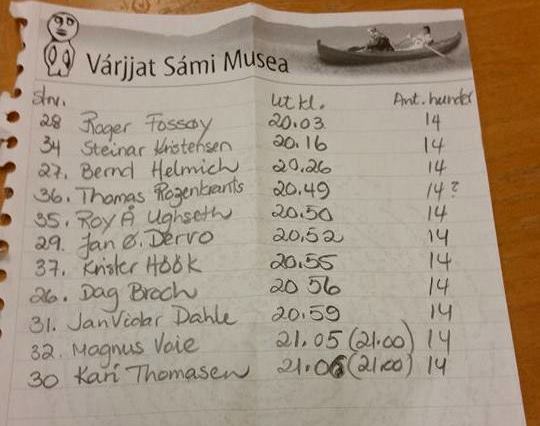 Várjjat Sámi Musea
Stnr. ut kl. Ant. hunder
28 Roger Fossøy 20.03 14
34 Steinar Kristensen 20.16 14
27. Bernd Helmich 20.26 14
36. Thomas Rozenkrants 20.49 14?
35. Roy A Ughseth 20.50 14
29. Jan Ø. Dervo 20.52 14
37. Krister Höök 20.55 14
26. Dag Broch 20 56 14
31. Jan Vidar Dahle 20.59 14
32. Magnus Voie 21.05 (21.00) 14
30 Kari Thomasen 21.06 (21.00) 14